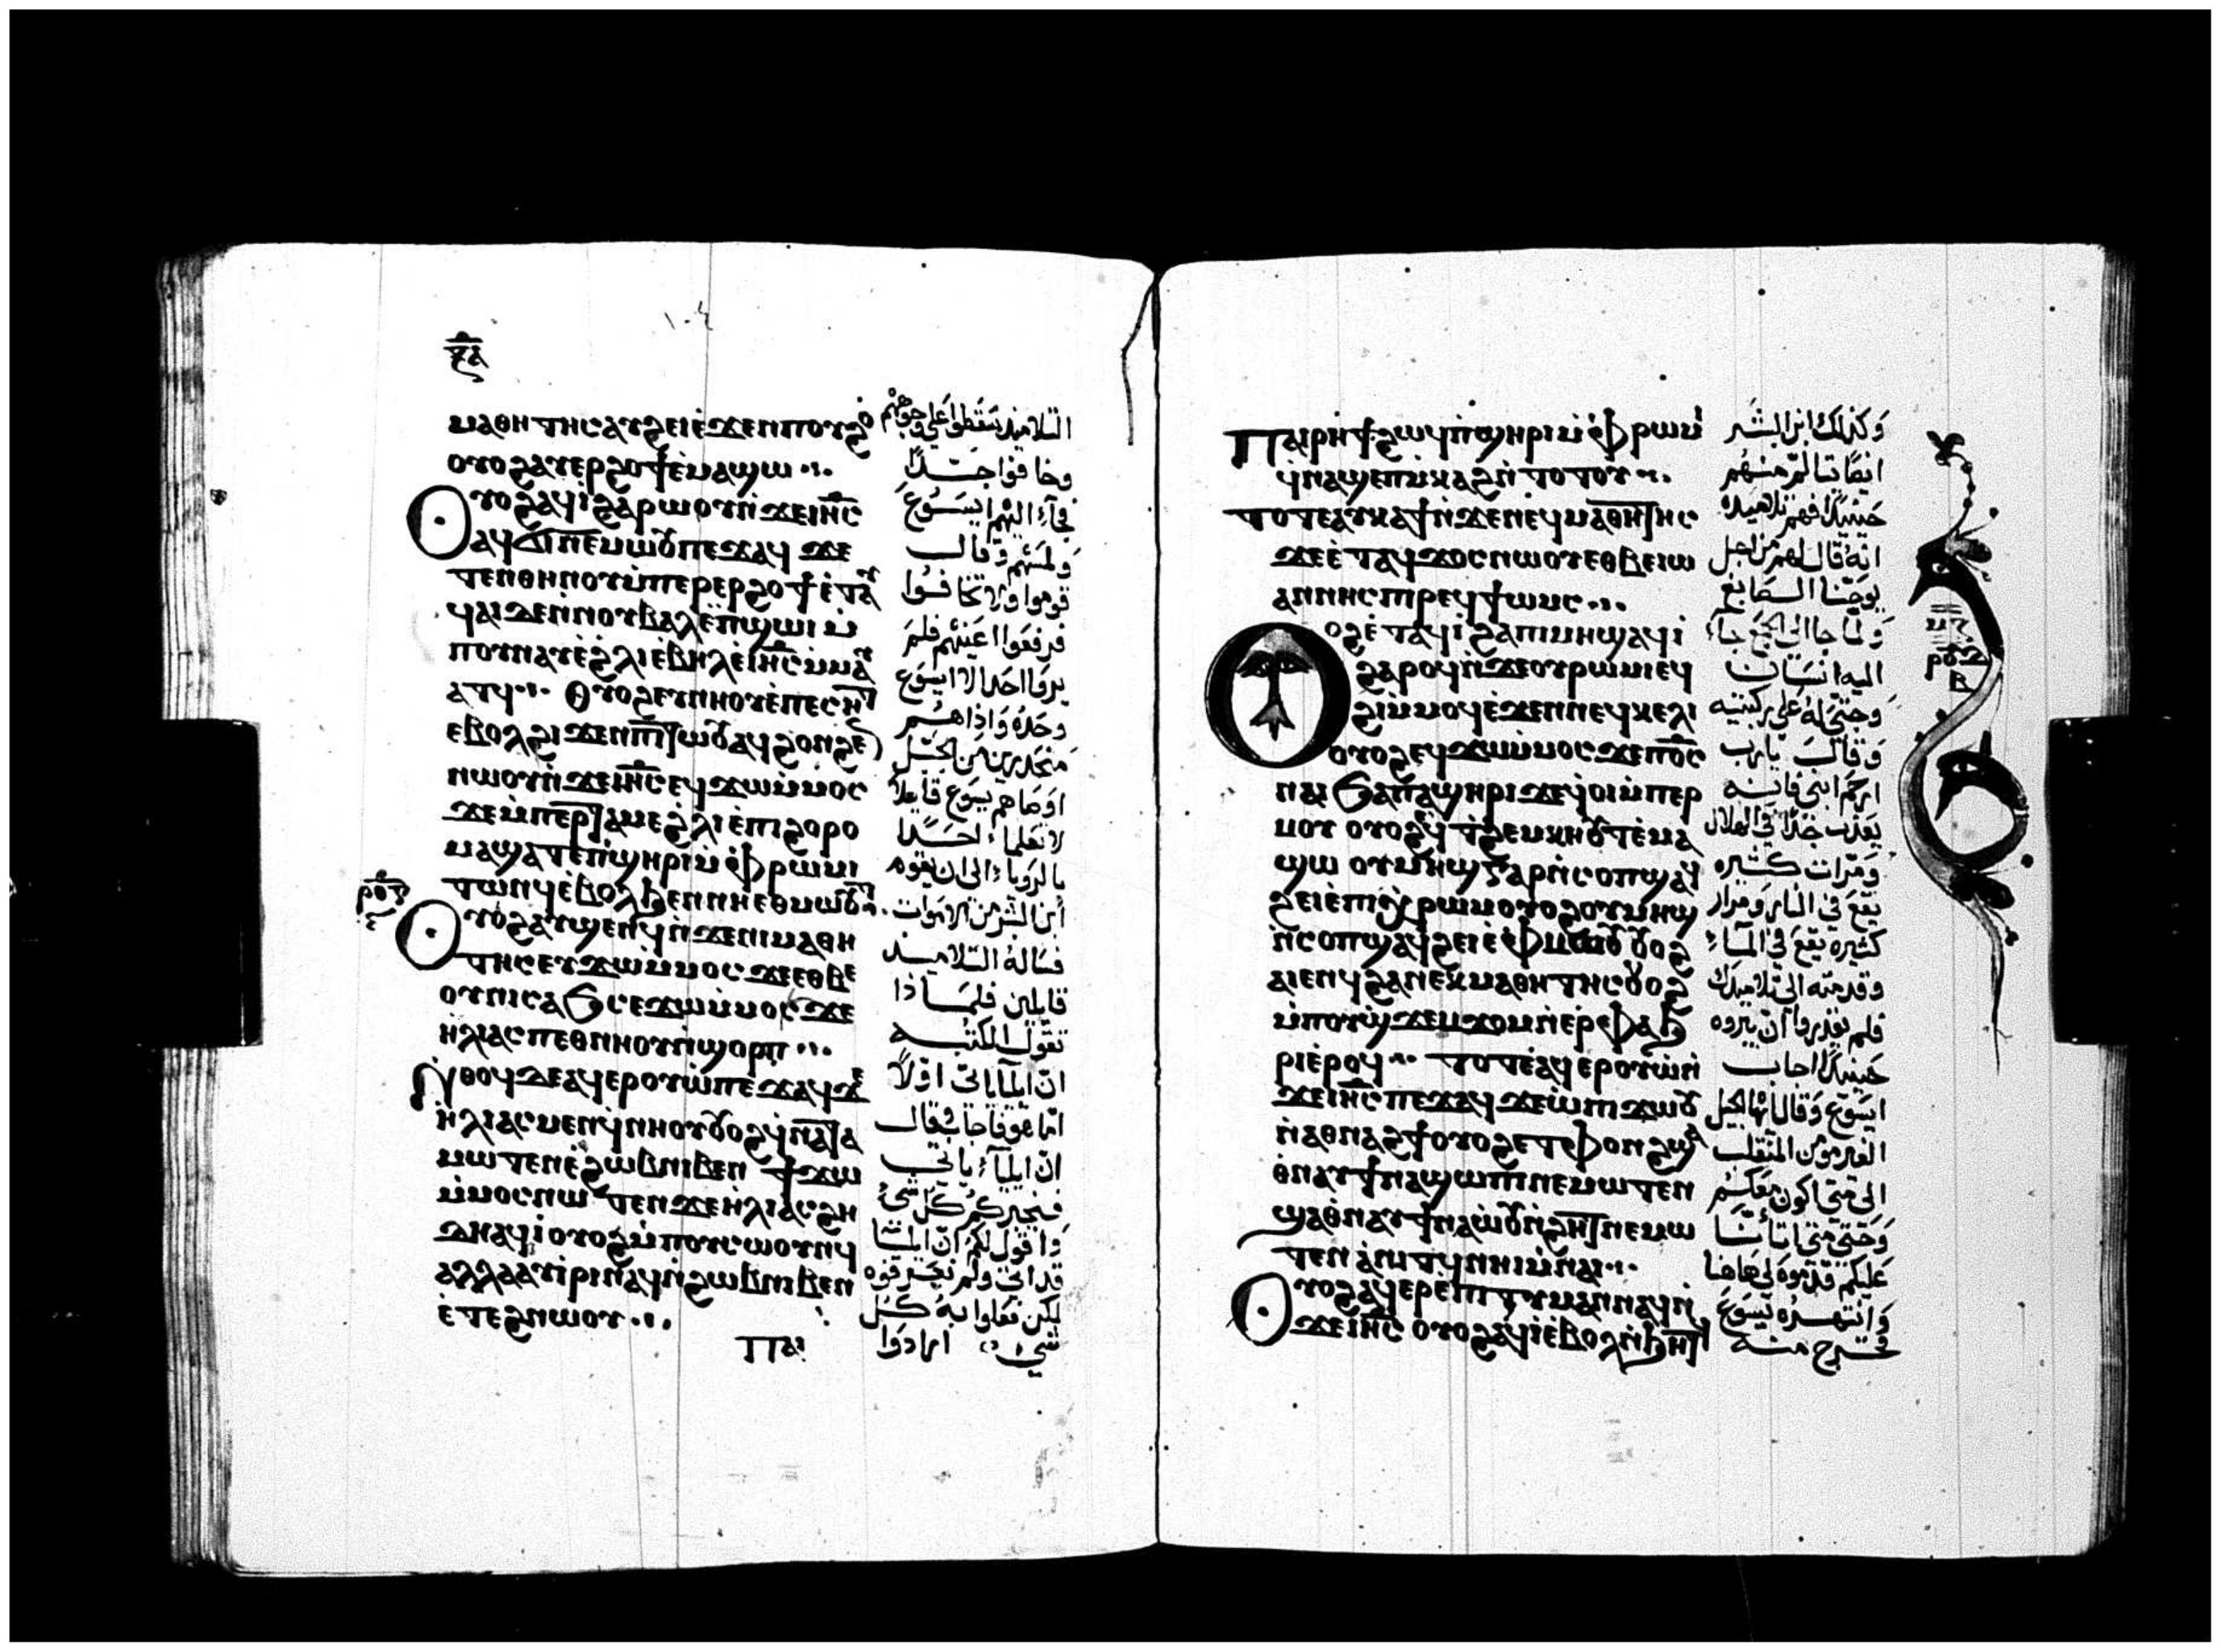 ⲙⲁⲑⲏⲧⲏⲥⲁⲩϩⲉⲓⲉϫⲉⲛⲡⲟⲩϩⲟ
ⲟⲩⲟϩⲁⲩⲉⲣϩⲟϯⲉⲙⲁϣⲱ
ⲟⲩⲟϩⲁϥⲓϩⲁⲣⲱⲟⲩⲛϫⲉⲓⲏⲥ
ⲁϥϭⲓⲛⲉⲙⲱⲟⲩⲡⲉϫⲁϥ ϫⲉ
ⲧⲉⲛⲑⲏⲛⲟⲩⲙⲡⲉⲣⲉⲣϩⲟϯⲉⲧⲁⲩ
ϥⲁⲓϫⲉⲛⲛⲟⲩⲃⲁⲗⲉⲡϣⲱⲓⲙ
ⲡⲟⲩⲛⲁⲩⲉϩⲗⲓⲉⲃⲏⲗⲉⲓⲏⲥⲙⲙⲁⲩ
ⲁⲧϥ ⲟⲩⲟϩⲉⲩⲛⲏⲟⲩⲉⲡⲉⲥⲏⲧ
ⲉⲃⲟⲗϩⲓϫⲉⲛⲡⲓⲧⲱⲟⲩⲁϥϩⲟⲛϩⲉⲛ
ⲛⲱⲟⲩⲛϫⲉⲓⲏⲥⲉϥϫⲱⲙⲙⲟⲥ
ϫⲉⲙⲡⲉⲣⲧⲁⲙⲉϩⲗⲓⲉⲡⲓϩⲟⲣⲟ
ⲙⲁϣⲁⲧⲉⲡϣⲏⲣⲓⲙⲫⲣⲱⲙⲓ
ⲧⲱⲛϥⲉⲃⲟⲗϧⲉⲛⲛⲏⲉⲑⲙⲱⲟⲩⲧ
ⲟⲩⲟϩⲁⲩϣⲉⲛϥⲛϫⲉⲛⲓⲙⲁⲑⲏ
ⲧⲏⲥⲉⲩϫⲱⲙⲙⲟⲥ ϫⲉⲉⲑⲃⲉ
ⲟⲩⲛⲓⲥⲁϧⲥⲉϫⲱⲙⲙⲟⲥϫⲉ
ⲏⲗⲓⲁⲥⲡⲉⲑⲛⲏⲟⲩⲛϣⲟⲣⲡ
ⲛⲑⲟϥⲇⲉⲁϥⲉⲣⲟⲩⲱⲡⲉϫⲁϥϫⲉ
ⲏⲗⲓⲁⲥⲙⲉⲛϥⲛⲏⲟⲩⲟⲩⲟϩϥⲛⲁⲧⲁ
ⲙⲱⲧⲉⲛⲉϩⲱⲃⲛⲓⲃⲉⲛ ϯϫⲱ
ⲙⲙⲟⲥⲛⲱⲧⲉⲛϫⲉⲏⲗⲓⲁⲥϩⲏ
ⲇⲏⲁϥⲓⲟⲩⲟϩⲙⲡⲟⲩⲥⲱⲟⲩⲛϥ
ⲁⲗⲗⲁⲁⲩⲓⲣⲓⲛⲁϥⲛϩⲱⲃⲛⲓⲃⲉⲛ
ⲉⲧⲉϩⲛⲱⲟⲩ
ⲡⲁⲓ
التلاميذ سقطوا علي وجوههم
وخافوا جدًا
فجاء اليهم ايسوع
ولمسهم وقال
قوموا ولا تخافوا
فرفعوا اعينهم فلم
يروا احدا الا ايسوع
وحده واذا هم
منحدرين من الجبل
اوصاهم يسوع قايلا
لا تعلموا احدًا
بالرويا الى ان يقوم
ابن البشر من الاموات
فساله التلاميذ
قايلين فلماذا
تقول الكتبه
ان ايليا ياتي اولاً
اما هو فاجاب فقال
ان ايليا ياتي
فيخبركم كل شي
واقول لكم ان ايليا
قد اتى ولم يعرفوه
لكن فعلوا به كل
شي ارادوا
ⲡⲁⲓⲣⲏϯϩⲱϥⲡϣⲏⲣⲓⲙⲫⲣⲱⲙⲓ
ϥⲛⲁϣⲉⲡⲙⲕⲁϩⲛⲧⲟⲧⲟⲩ
ⲧⲟⲧⲉⲁⲩⲕⲁϯⲛϫⲉⲛⲉϥⲙⲁⲑⲏⲧⲏⲥ
ϫⲉⲉⲧⲁϥϫⲟⲥⲛⲱⲟⲩⲉⲑⲃⲉⲓⲱ
ⲁⲛⲛⲏⲥⲡⲓⲣⲉϥϯⲱⲙⲥ
ⲟⲩⲟϩⲉⲧⲁϥⲓϩⲁⲡⲓⲙⲏϣⲁϥⲓ
ϩⲁⲣⲟϥⲛϫⲉⲟⲩⲣⲱⲙⲓⲉϥ
ϩⲓⲙⲙⲟϥⲉϫⲉⲛⲛⲉϥⲕⲉⲗⲓ
ⲟⲩⲟϩⲉϥϫⲱⲙⲙⲟⲥϫⲉⲡⲟⲥ
ⲛⲁⲓϧⲁⲡⲁϣⲏⲣⲓϫⲉϥⲟⲓⲙⲡⲉⲣ
ⲙⲟⲩ ⲟⲩⲟϩϥⲧϩⲉⲙⲕⲏⲟⲩⲧⲉⲙⲁ
ϣⲱ ⲟⲩⲙⲏϣⲅⲁⲣⲛⲥⲟⲡϣⲁϥ
ϩⲉⲓⲉⲡⲓⲭⲣⲱⲙⲟⲩⲟϩⲟⲩⲙⲏϣ
ⲛⲥⲟⲡϣⲁϥϩⲉⲓⲉⲫⲙⲱⲟⲩ ⲟⲩⲟϩ
ⲁⲓⲉⲛϥϩⲁⲛⲉⲕⲙⲁⲑⲏⲧⲏⲥⲟⲩⲟϩ
ⲙⲡⲟⲩϣϫⲉⲙϫⲟⲙⲛⲉⲣⲫⲁϧ
ⲣⲓⲉⲣⲟϥ ⲧⲟⲧⲉⲁϥⲉⲣⲟⲩⲱⲛ
ϫⲉⲓⲏⲥⲡⲉϫⲁϥϫⲉⲱⲡⲓϫⲱⲟⲩ
ⲛⲁⲑⲛⲁϩϯⲟⲩⲟϩⲉⲧⲫⲟⲛϩϣⲁ
ⲑⲛⲁⲩϯⲛⲁϣⲱⲡⲓⲛⲉⲙⲱⲧⲉⲛ
ϣⲁⲑⲛⲁⲩϯⲛⲁⲱⲟⲩⲛϩⲏⲧⲛⲉⲙⲱ
ⲧⲉⲛ ⲁⲛⲓⲧϥⲛⲏⲓⲙⲛⲁⲓ
ⲟⲩⲟϩⲁϥⲉⲣⲉⲡⲓⲧⲓⲙⲁⲛⲛⲁϥⲛ
ϫⲉⲓⲏⲥ ⲟⲩⲟϩⲁϥⲓⲉⲃⲟⲗⲛϧⲏⲧϥ
وكذلك ابن البشر
ايضًا يتالم منهم
حينيذًا فهم تلاميذه
انه قال لهم من اجل
يوحنا الصابغ
ولما جا الى الجمع جاء
اليه انسان
وجثي له علي ركبتيه
وقال يا رب
ارحم ابني فانه
يعذب جدًا في الهلال
ومرات كثيره
يقع في النار ومرار
كثيره يقع في الماء
وقدمته الى تلاميذك
فلم يقدروا ان يبروه
حينيذًا اجاب
ايسوع وقال ايها الجيل
الغير مومن المتقلب
الى متى اكون معكم
وحتى متى اتأنا
عليكم قدموه لي هاهنا
وانتهره يسوع
فخرج منه